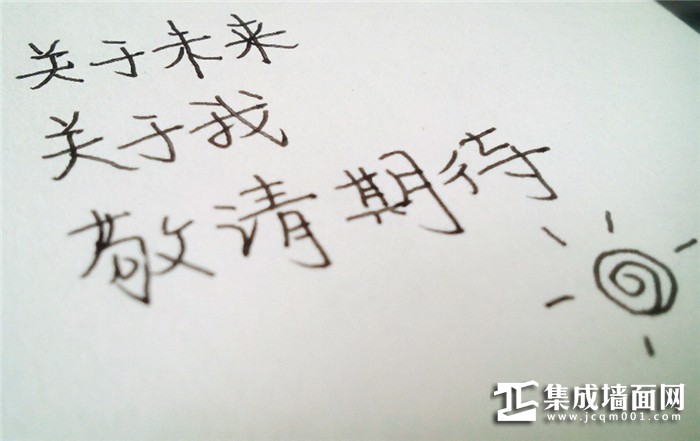 关于未来
关于我
敬请期待
集成墙面网
www.jcqm001.com